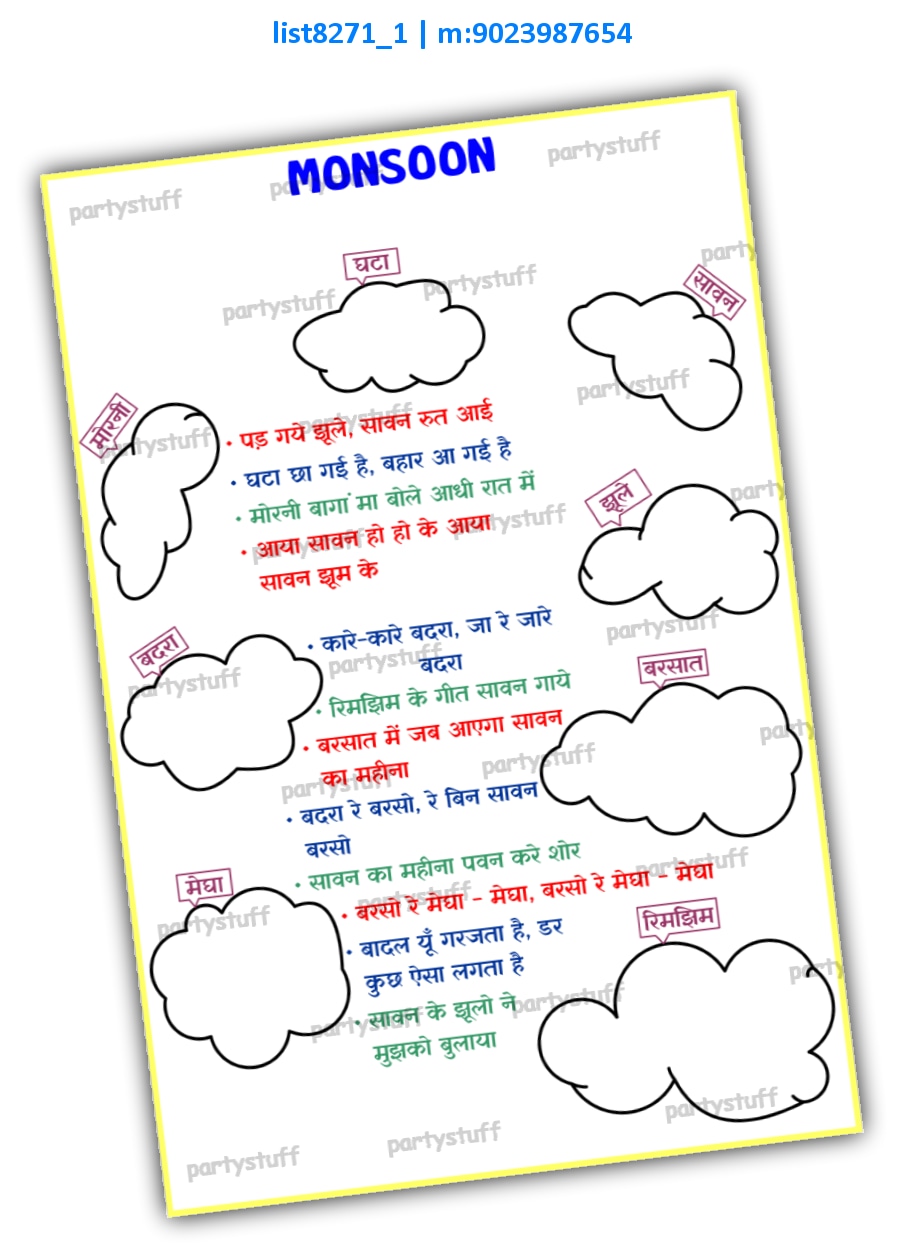 list8271_1 | m:9023987654
MONSOON
partystuff
partystuff
partystuff
घटा
सावन
partystuff
partystuff
partystuff
मोरनी
partystuff
• पड़ गये झूले, सावन रुत आई
• घटा छा गई है, बहार आ गई है
• मोरनी बागां मा बोले आधी रात में
• आया सावन हो हो के आया
सावन झूम के
झूले
partystuff
partystuff
partystuff
बदरा
• कारे-कारे बदरा, जा रे जारे
बदरा
partystuff
partystuff
बरसात
• रिमझिम के गीत सावन गाये
• बरसात में जब आएगा सावन
का महीना
partystuff
partystuff
• बदरा रे बरसो, रे बिन सावन
बरसो
• सावन का महीना पवन करे शोर
partystuff
मेघा
• बरसो रे मेघा - मेघा, बरसो रे मेघा - मेघा
रिमझिम
partystuff
• बादल यूँ गरजता है, डर
कुछ ऐसा लगता है
partystuff
• सावन के झूलो ने
मुझको बुलाया
partystuff
partystuff
partystuff
partystuff